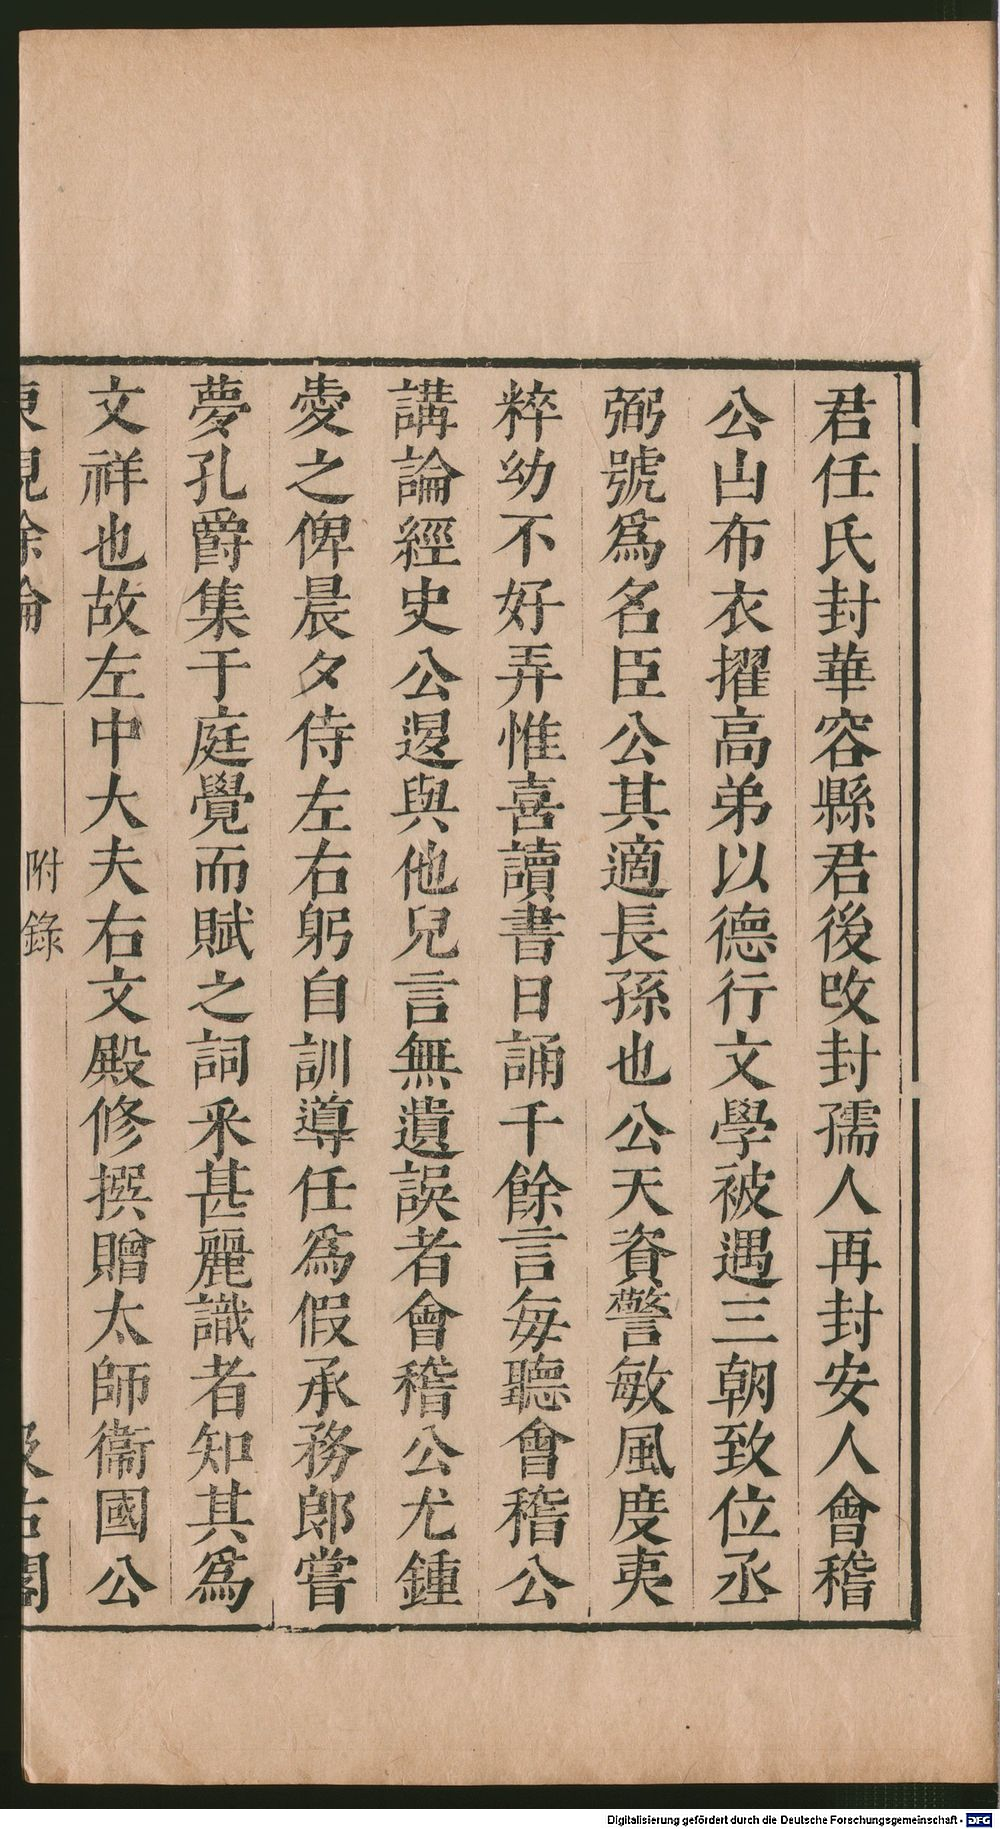 君任氏封華容縣君後改封孺人再封安人會稽
公由布衣擢高弟以德行文學被遇三朝致位丞
弼號爲名臣公其適長孫也公天資警敏風度夷
粹幼不好弄惟喜讀書日誦千餘言每聽會稽公
講論經史公退與他兒言無遺誤者會稽公尤鍾
愛之俾晨夕侍左右躬自訓導任爲假承務郎嘗
夢孔爵集于庭覺而賦之詞采甚麗識者知其爲
文祥也故左中大夫右文殿修撰贈太師衞國公
東觀餘論 附錄 汲古閣
Digitalisierung gefördert durch die Deutsche Forschungsgemeinschaft - DFG